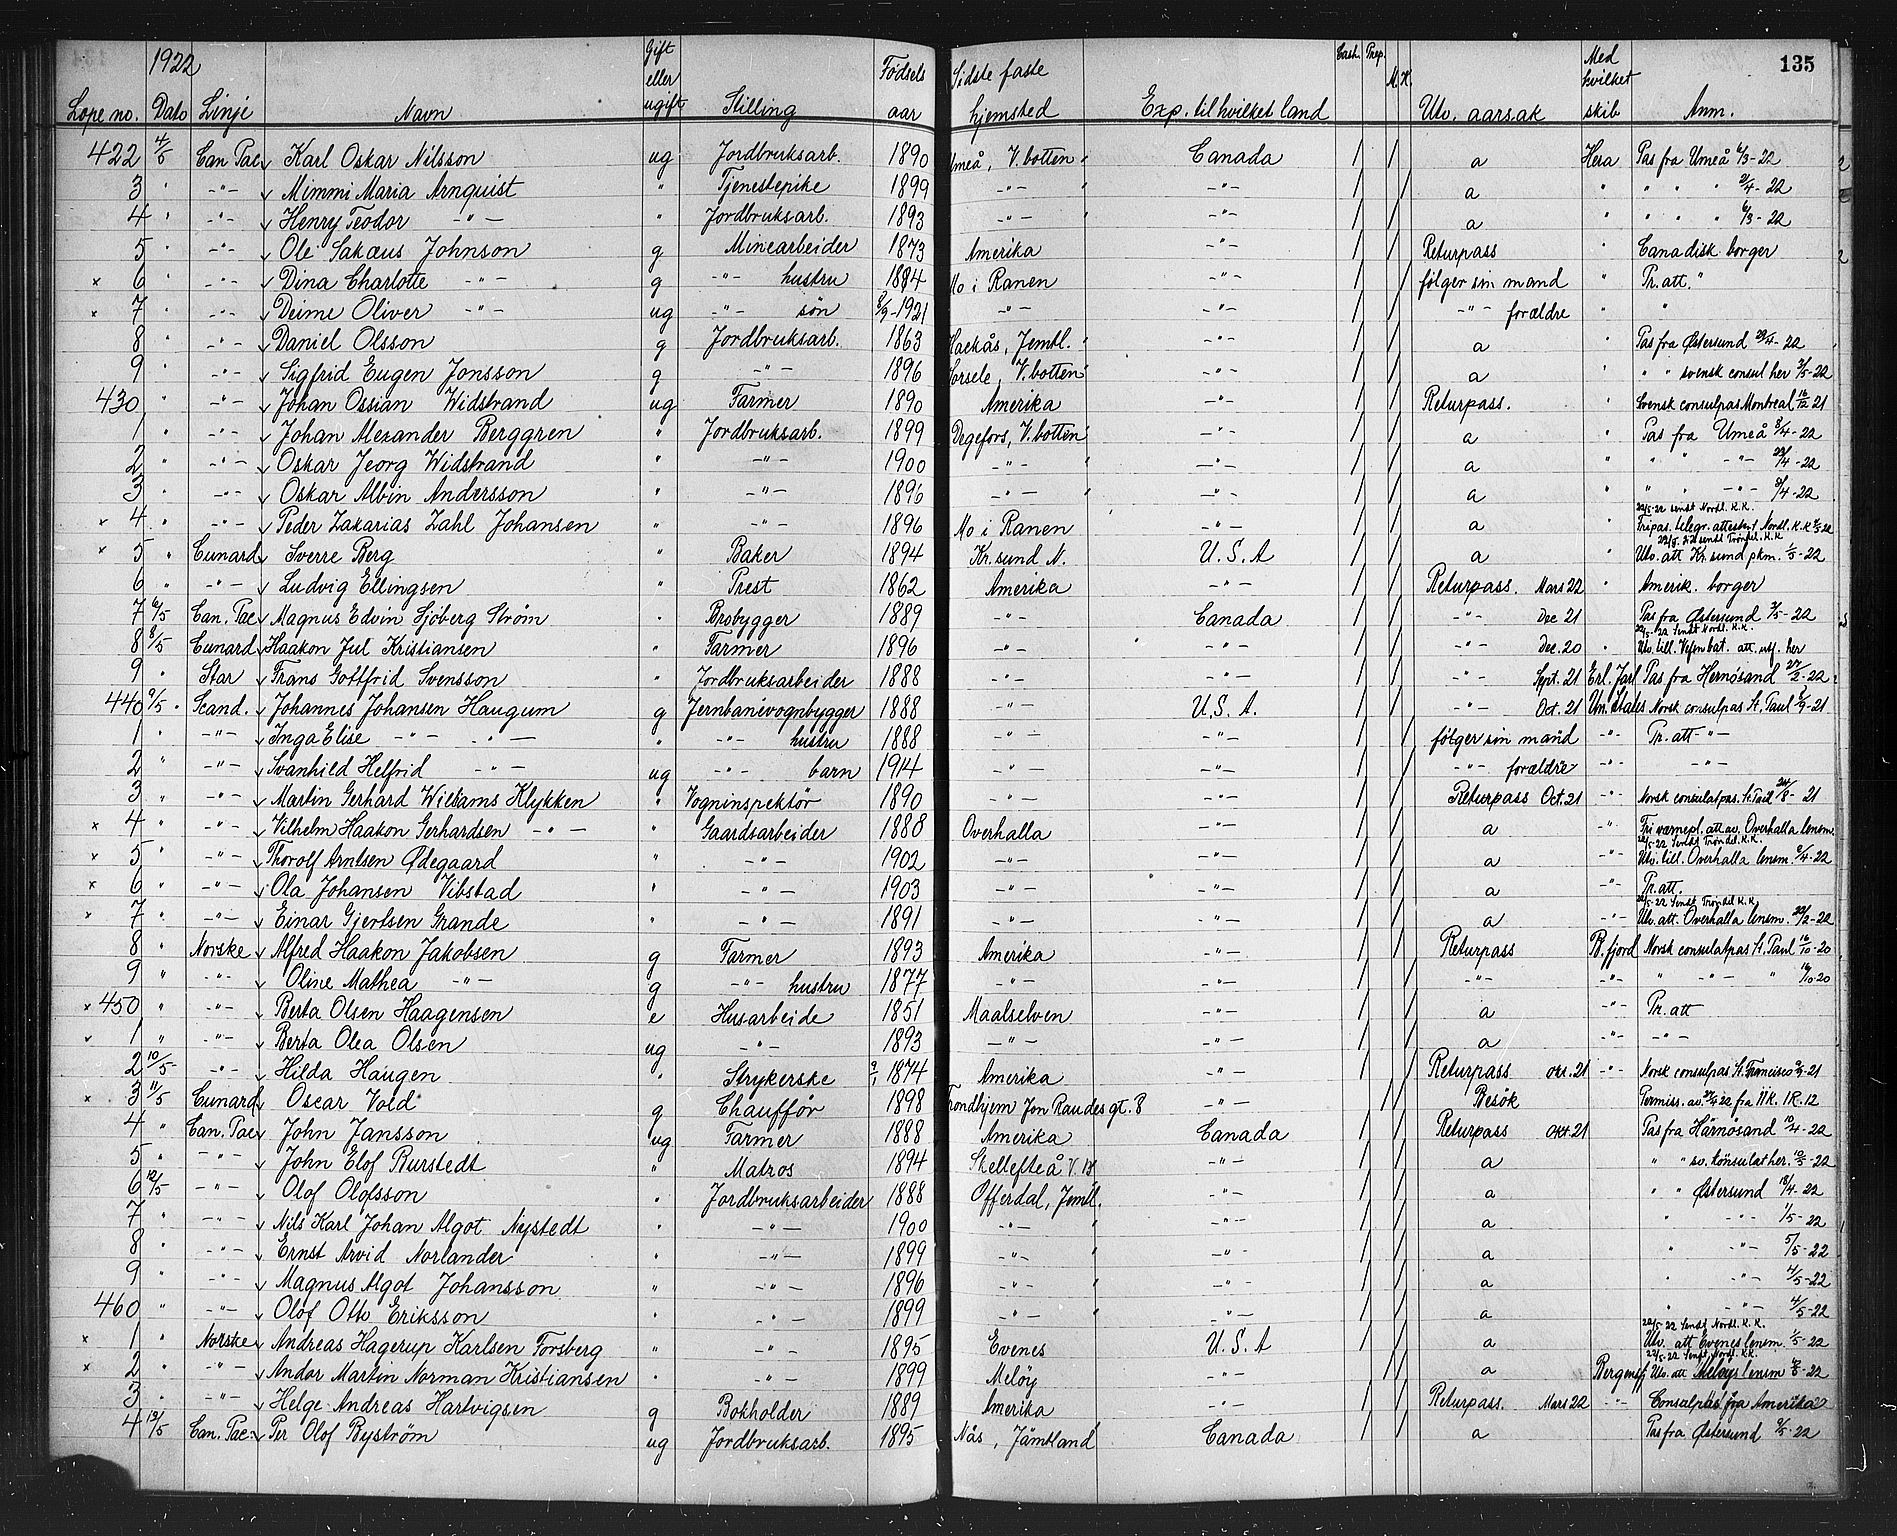 1922 Gift Fødsels Sidste faste Cash. Prep. Med 135
eller M. K. hvilket
Løpe no. Dato Linje Navn ugift Stilling aar hjemsted Exp. til hvilket land Utv. aarsak skib Anm.
422 4/5 Can Pac Karl Oskar Nilsson ug Jordbruksarb. 1890 Umeå, V.botten Canada a Hera Pas fra Umeå 6/3-22
3 " -"- Mimmi Maria Arnquist " Tjenestepike 1899 -"- -"- a " " " " 2/4-22
4 " -"- Henry Teodor -"- " Jordbruksarb. 1893 -"- -"- a " " " " 6/3-22
5 " -"- Ole Sakæus Johnson g Minearbeider 1873 Amerika -"- Returpass " Canadisk borger
x 6 " -"- Dina Charlotte -"- g -"- hustru 1884 Mo i Ranen -"- følger sin mand " Pr. att. "
x 7 " -"- Deime Oliver -"- ug -"- søn 8/9-1921 -"- -"- -"- forældre " "
8 " -"- Daniel Olsson g Jordbruksarb. 1863 Hackås, Jemtl. -"- a " Pas fra Østersund 29/4-22
9 " -"- Sigfrid Eugen Jonsson g -"- 1896 Vorsele, V.botten -"- a " " " svensk consul her 2/5-22
430 " -"- Johan Ossian Widstrand ug Farmer 1890 Amerika -"- Returpass. " Svensk consulpas Montreal 16/12 21
1 " -"- Johan Alexander Berggren " Jordbruksarb. 1899 Degefors, V.botten -"- a " Pas fra Umeå 8/4-22
2 " -"- Oskar Jeorg Widstrand " -"- 1900 -"- " -"- a " " " -"- 23/4-22
3 " -"- Oskar Albin Andersson " -"- 1896 -"- " -"- a " " " -"- 8/4-22
22/5-22 sendt Nordl. K.K.
x 4 " -"- Peder Zakarias Zahl Johansen " -"- 1896 Mo i Ranen -"- a " Fripas. telegr. attestert Nordl. K.K 2/5-22
22/5. 22 sendt Trøndel. K.K
x 5 " Cunard Sverre Berg " Baker 1894 Kr.sund N. U.S.A a " Utv. att Kr.sund pkm. 1/5-22
6 " -"- Ludvig Ellingsen " Prest 1862 Amerika -"- Returpass. Mars 22 " Amerik. borger
7 6/5 Can. Pac Magnus Edvin Sjöberg Strøm " Brobygger 1889 -"- Canada -"- Dec 21 Pas fra Østersund 3/5-22
22/5-22 Sendt Nordl. K.K.
8 8/5 Cunard Haakon Jul Kristiansen " Farmer 1896 -"- -"- -"- Dec. 20 " Utv. till. Vefsn bat. att. utf. her
9 " Star Frans Gottfrid Svensson " Jordbruksarbeider 1888 -"- -"- -"- Sept. 21 Erl. Jarl Pas fra Hernösand 27/2-22
440 9/5 Scand. Johannes Johansen Haugum g Jernbanevognbygger 1888 -"- U.S.A. -"- Oct. 21 Un. States Norsk consulpas St. Paul 6/9-21
1 " -"- Inga Elise -"- -"- " -"- hustru 1888 -"- -"- følger sin mand -"- Pr. att -"-
2 " -"- Svanhild Helfrid -"- ug -"- barn 1914 -"- -"- -"- forældre -"- -"-
3 " -"- Martin Gerhard Williams Klykken " Vogninspektør 1890 -"- -"- Returpass Oct. 21 -"- Norsk consulatpas. St. Paul 24/8-21
x 4 " -"- Vilhelm Haakon Gerhardsen -"- " Gaardsarbeider 1888 Overhalla -"- a -"- Fri værnepl. att av. Overhalla lensm.
22/5-22 Sendt Trøndel. K.K.
x 5 " -"- Thorolf Arntsen Ødegaard " -"- 1902 -"- -"- a -"- Utv. till. Overhalla lensm. 6/4-22
x 6 " -"- Ola Johansen Vibstad " -"- 1903 -"- -"- a -"- Pr. att.
22/5-22 Sendt Trøndel K.K.
x 7 " -"- Einar Gjertsen Grande " -"- 1891 -"- -"- a -"- Utv. att. Overhalla lensm. 22/2-22
8 " Norske Alfred Haakon Jakobsen g Farmer 1893 Amerika -"- Returpass B.fjord Norsk consulatpas St. Paul 16/10-20
9 " -"- Oline Mathea -"- g -"- hustru 1877 -"- -"- -"- -"- " -"- " 16/10-20
x 450 " -"- Berta Olsen Haagensen e Husarbeide 1851 Maalselven -"- a -"- Pr. att
x 1 " -"- Berta Olea Olsen ug -"- 1893 -"- -"- a -"- -"-
2 10/5 -"- Hilda Haugen " Strykerske 9/1 1874 Amerika -"- Returpass okt. 21 -"- Norsk consulpas St. Francisco 9/9-21
x 3 11/5 Cunard Oscar Vold g Chauffør 1898 Trondhjem Jon Raudes gt. 8 -"- Besøk Permiss. av 27/4 22 fra IIK. I.R. 12
4 " Can. Pac John Jansson ug Farmer 1888 Amerika Canada Returpass Okt. 21 Pas fra Härnösand 10/4-22
5 " -"- John Elof Burstedt " Matros 1894 Skellefteå V. B -"- a " " sv. konsulat her. 10/5-22
6 12/5 -"- Olof Olofsson " Jordbruksarbeider 1888 Offerdal, Jemtl. -"- a " " Østersund 18/4-22
7 " -"- Nils Karl Johan Algot Nystedt " -"- 1900 -"- " -"- a " -"- 1/5-22
8 " -"- Ernst Arvid Norlander " -"- 1899 -"- " -"- a " -"- 5/5-22
9 " -"- Magnus Algot Johansson " -"- 1896 -"- " -"- a " -"- 4/5-22
460 " -"- Olof Otto Eriksson " -"- 1899 -"- " -"- a " -"- 4/5-22
22/5-22 Sendt Nordl. K.K.
x 1 " Norske Andreas Hagerup Karlsen Forsberg " -"- 1895 Evenes U.S.A a Utv. att Evenes lensm. 1/5-22
22/5-22 Sendt Nordl. K.K.
x 2 " -"- Andor Martin Norman Kristiansen " -"- 1899 Meløy a Bergensfj Utv. att Meløy lensm 2/5-22
3 " -"- Helge Andreas Hartvigsen g Bokholder 1889 Amerika Returpass. Mars 22 -"- Consulpas fra Amerika
4 13/5 Can. Pac. Per Olof Byström ug Jordbruksarb. 1895 Näs, Jämtland Canada a Pas fra Østersund 9/5-22